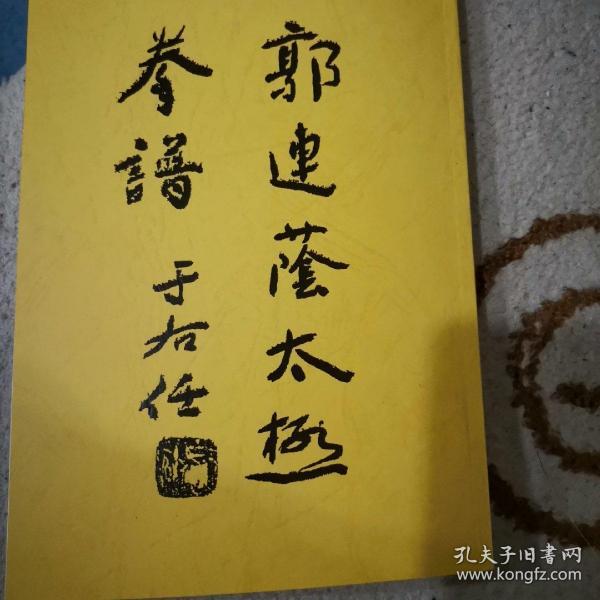 郭連蔭太極
拳譜
于右任
孔夫子旧書网
www.kongfz.com